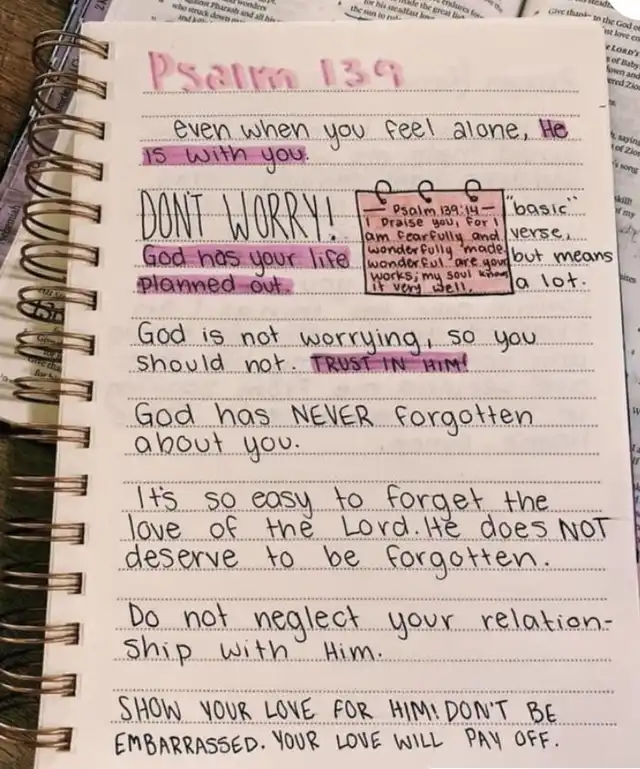 Psalm 139
even when you feel alone, He
is with you.
DON'T WORRY!
God has your life
planned out.
— Psalm 139:14 —
I Praise you, for I
am fearfully and
wonderfully made
wonderful are your
works; my soul knows
it very well.
"basic"
verse,
but means
a lot.
God is not worrying, so you
should not. TRUST IN HIM!
God has NEVER forgotten
about you.
It's so easy to forget the
love of the Lord. He does NOT
deserve to be forgotten.
Do not neglect your relation-
ship with Him.
SHOW YOUR LOVE FOR HIM! DON'T BE
EMBARRASSED. YOUR LOVE WILL PAY OFF.